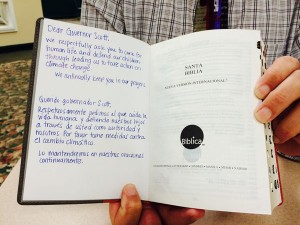 Dear Governor Scott,
We respectfully ask you to care for
human life and defend our children
through leading us to take action on
climate change.
We continually keep you in our prayers.
Querido gobernador Scott,
Respetuosamente pedimos al que cuide la
vida humana y defienda nuestros hijos
a través de usted como autoridad y
nosotros. Por favor tome medidas contra
el cambio climático.
Lo mantendremos en nuestras oraciones
continuamente.
SANTA
BIBLIA
NUEVA VERSIÓN INTERNACIONAL
Biblica